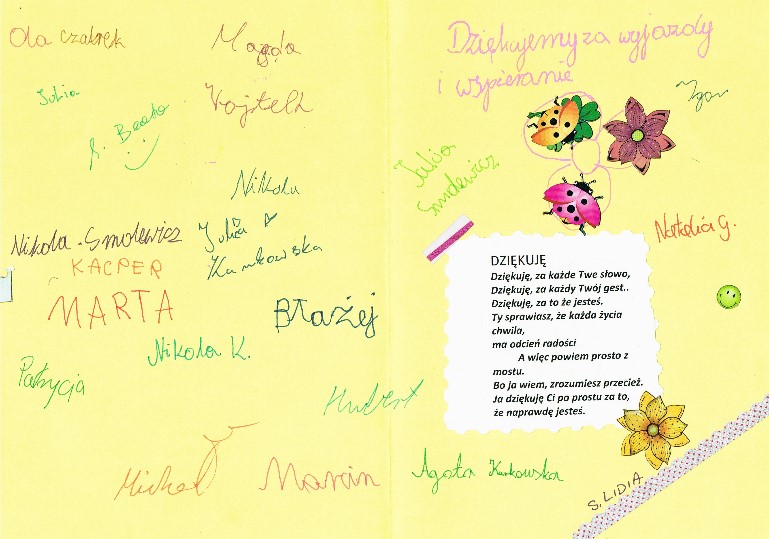 Ola czabrek
Magda
Julia
Wojtek
S. Beata
Nikola
Nikola Smolewicz
Julia
Kurkowska
KACPER
MARTA
Błażej
Nikola K.
Patrycja
Hubert
Michał
Marcin
Dziękujemy za wyjazdy
i wspieranie
Igor
Julia
Smolewicz
Natalia G.
DZIĘKUJĘ
Dziękuję, za każde Twe słowo,
Dziękuję, za każdy Twój gest..
Dziękuję, za to że jesteś.
Ty sprawiasz, że każda życia
chwila,
ma odcień radości
A więc powiem prosto z
mostu.
Bo ja wiem, zrozumiesz przecież.
Ja dziękuję Ci po prostu za to,
że naprawdę jesteś.
Agata Kurkowska
S. LIDIA